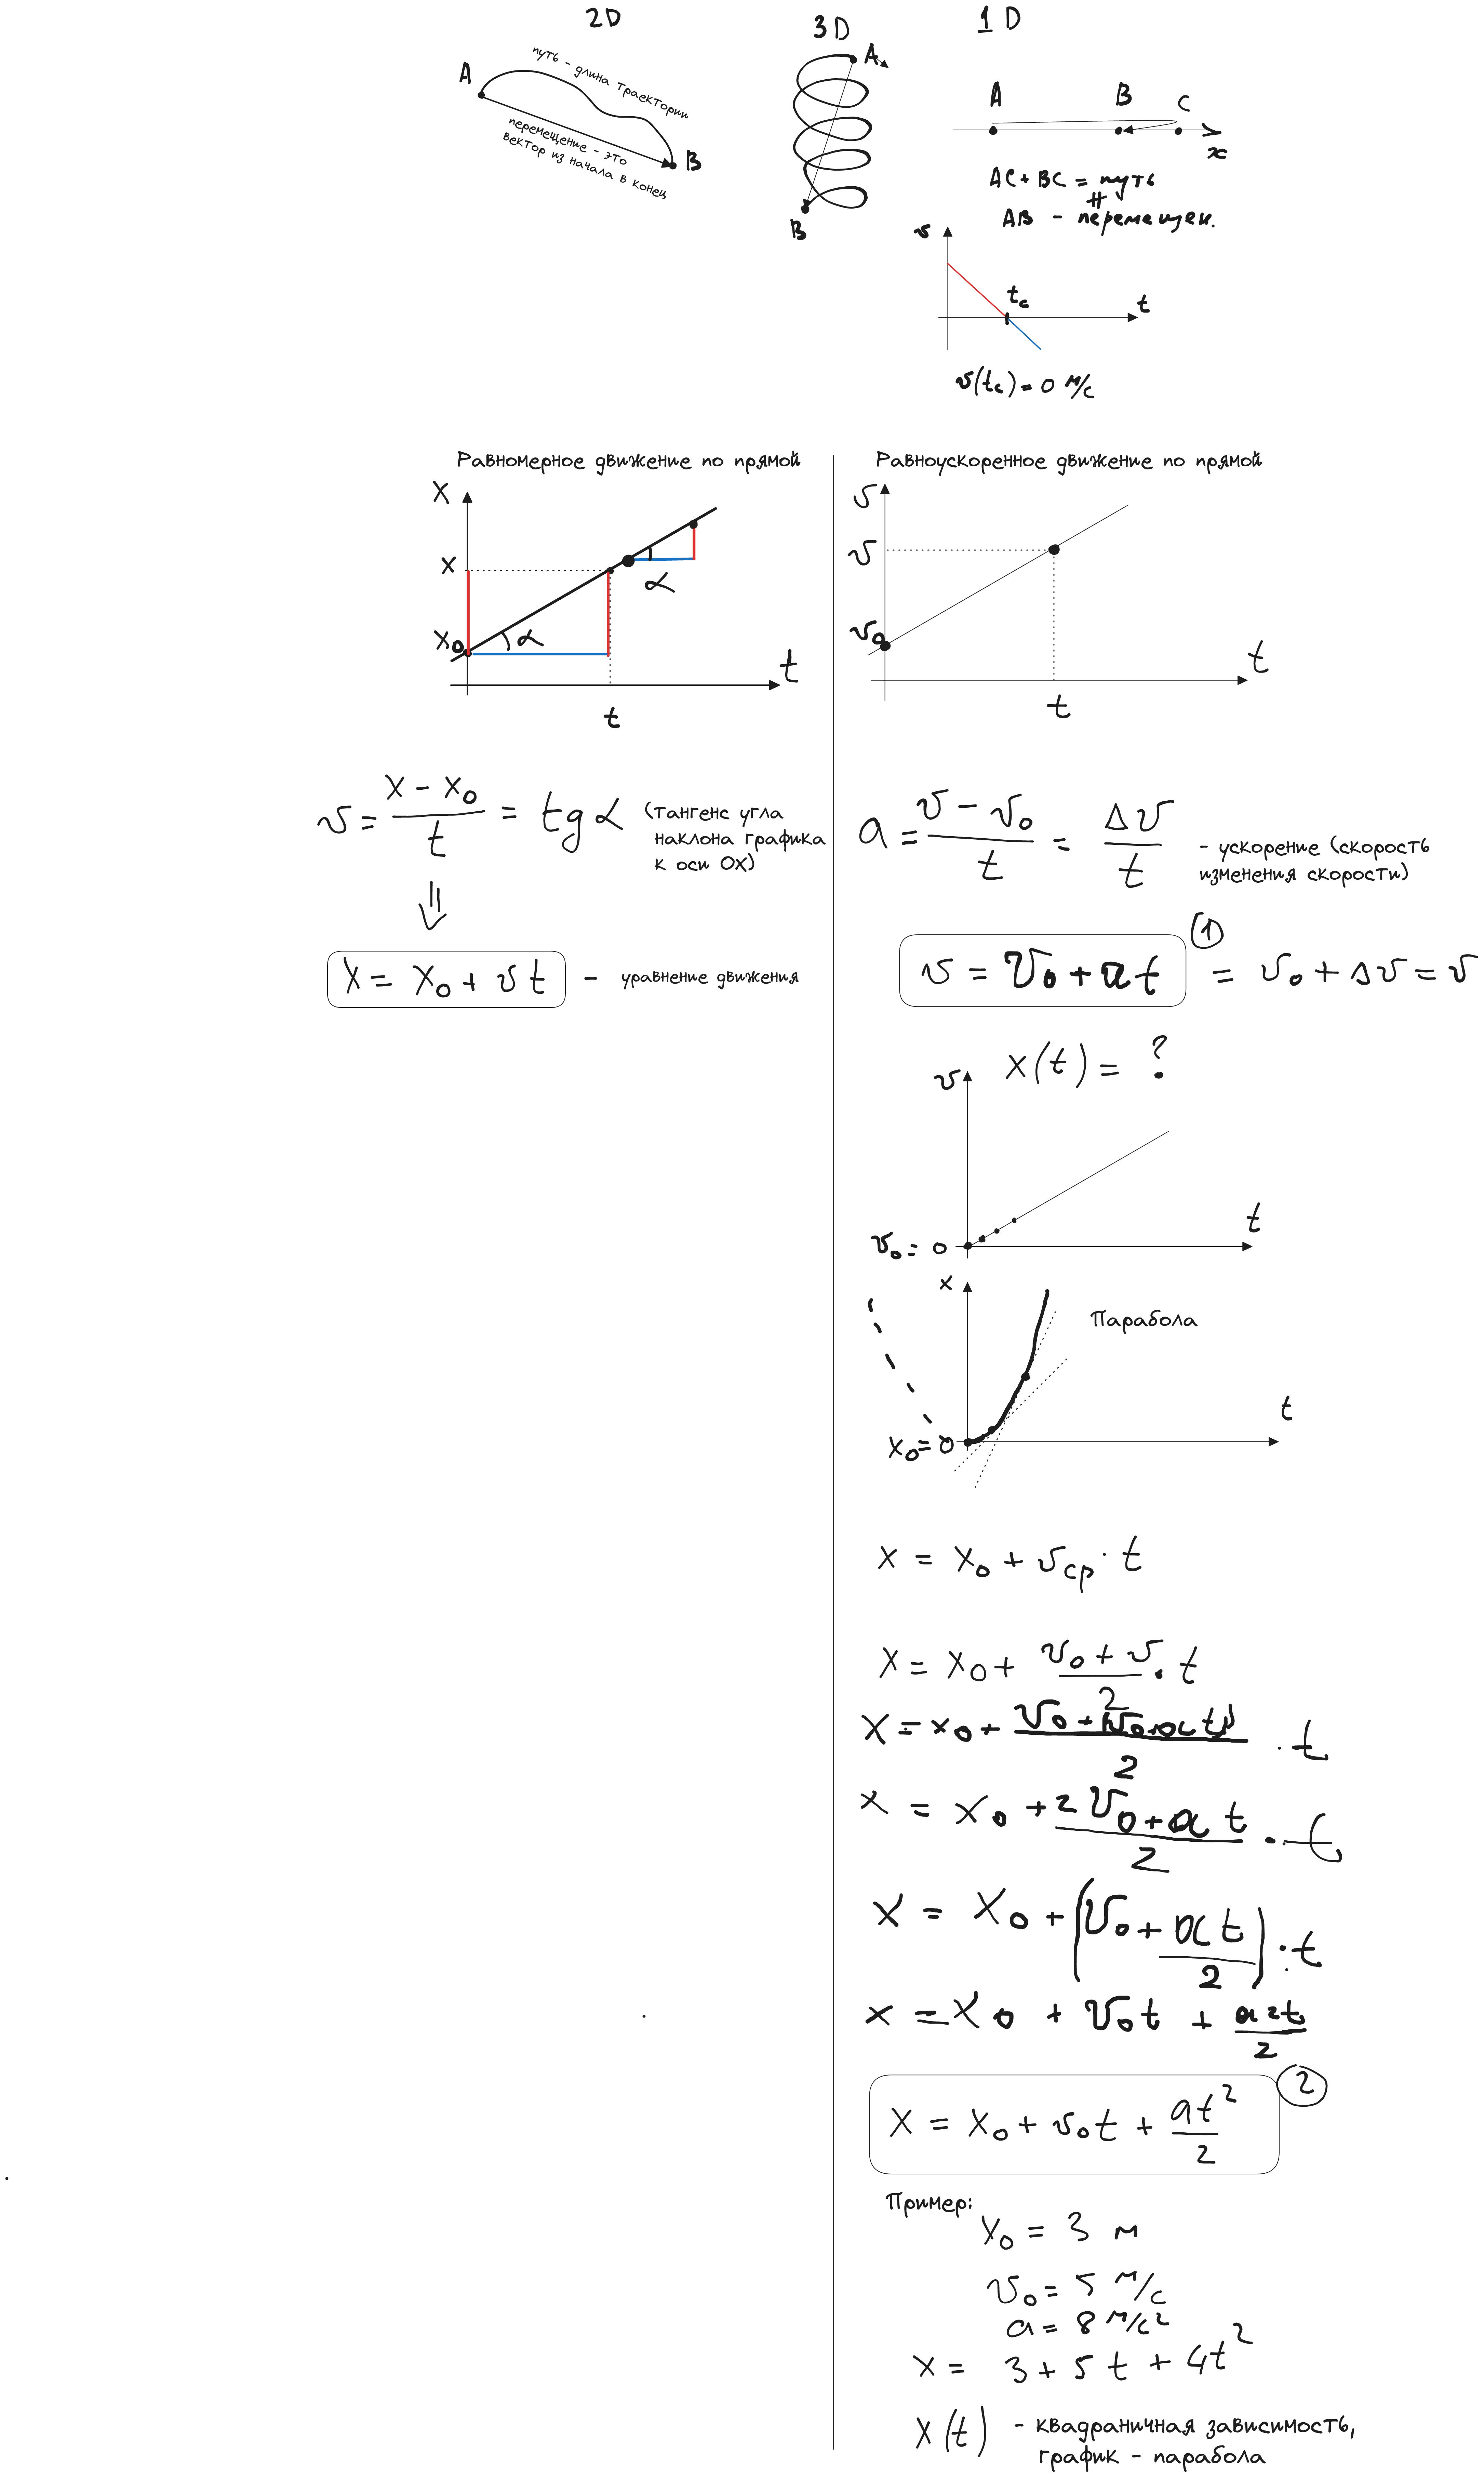 2D
3D
1D
A
путь - длина траектории
перемещение - это
вектор из начала в конец
B
A
B
A
B
C
x
AC + BC = путь
≠
AB - перемещен.
v
t_c
t
v(t_c) = 0 м/с
Равномерное движение по прямой
x
x
α
x₀
α
t
t
v = (x - x₀)/t = tg α
(тангенс угла
наклона графика
к оси OX)
⇓
x = x₀ + vt - уравнение движения
Равноускоренное движение по прямой
v
v
v₀
t
t
a = (v - v₀)/t = Δv/t
- ускорение (скорость
изменения скорости)
①
v = v₀ + at = v₀ + Δv = v
x(t) = ?
v
t
v₀ = 0
x
Парабола
t
x₀ = 0
x = x₀ + v_ср · t
x = x₀ + (v₀ + v)/2 · t
x = x₀ + (v₀ + (v₀ + at))/2 · t
x = x₀ + (2v₀ + at)/2 · t
x = x₀ + (v₀ + at/2) · t
x = x₀ + v₀t + a2t/2
②
x = x₀ + v₀t + at²/2
Пример:
x₀ = 3 м
v₀ = 5 м/с
a = 8 м/с²
x = 3 + 5t + 4t²
x(t) - квадраничная зависимость,
график - парабола